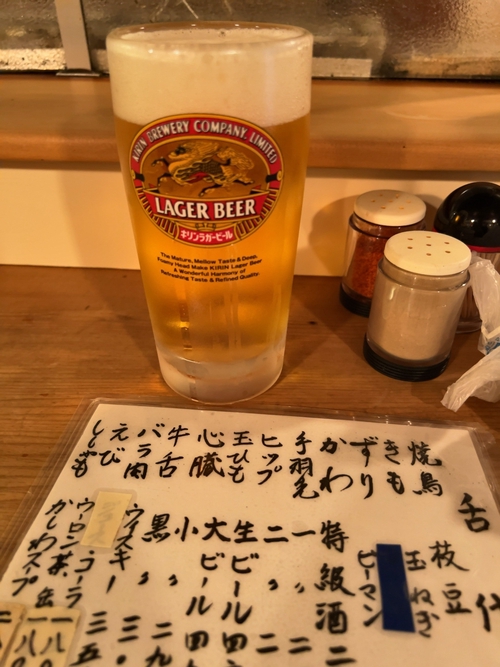 KIRIN BREWERY COMPANY, LIMITED
LAGER BEER
キリンラガービール
The Mature, Mellow Taste & Deep,
Foamy Head Make KIRIN Lager Beer
A Wonderful Harmony of
Refreshing Taste & Refined Quality.
焼鳥
きも
ずり
かわ
手羽先
ヒップ
玉ひも
心臓
牛舌
バラ肉
えび
ししとう
舌
枝豆
玉ねぎ
ピーマン
特級酒 二
一 〃
二 〃 二
生ビール 四
大ビール 四
小 〃
黒 〃 二九
ウイスキー 三〇
コーラ
ウーロン茶
かしわスープ